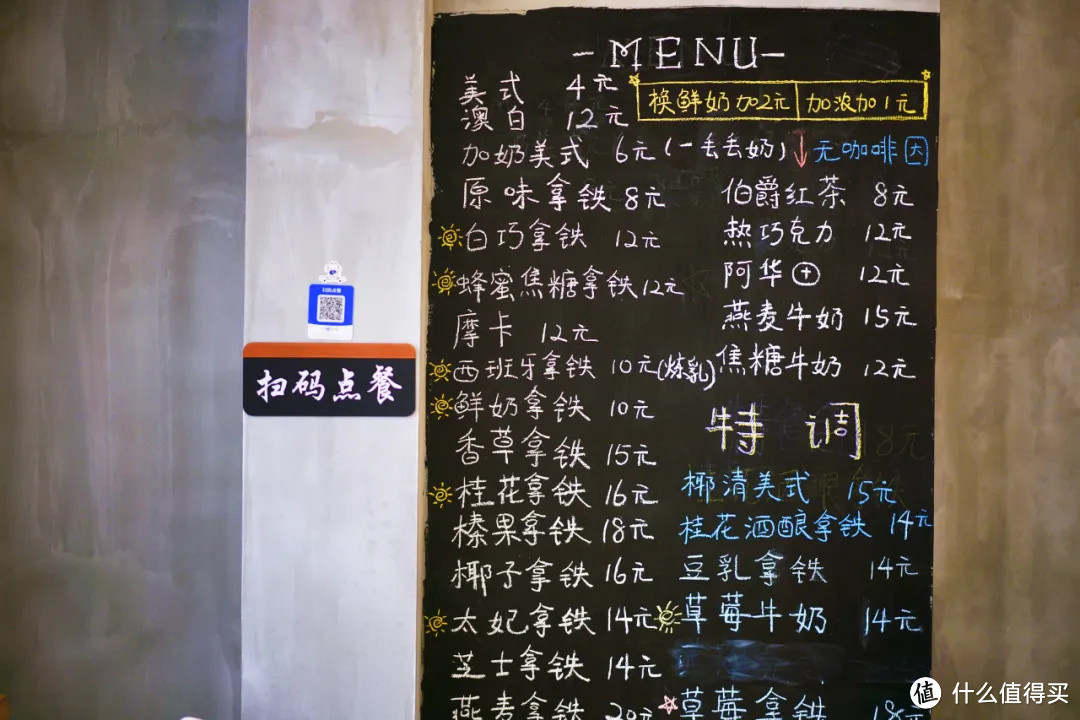 -MENU-
美式 4元
澳白 12元
加奶美式 6元(一丢丢奶)
原味拿铁 8元
白巧拿铁 12元
蜂蜜焦糖拿铁 12元
摩卡 12元
西班牙拿铁 10元(炼乳)
鲜奶拿铁 10元
香草拿铁 15元
桂花拿铁 16元
榛果拿铁 18元
椰子拿铁 16元
太妃拿铁 14元
芝士拿铁 14元
燕麦拿铁 20元
换鲜奶加2元 加浓加1元
↓无咖啡因
伯爵红茶 8元
热巧克力 12元
阿华田 12元
燕麦牛奶 15元
焦糖牛奶 12元
特调
椰清美式 15元
桂花酒酿拿铁 14元
豆乳拿铁 14元
草莓牛奶 14元
草莓拿铁 18元
扫码点餐
值 什么值得买